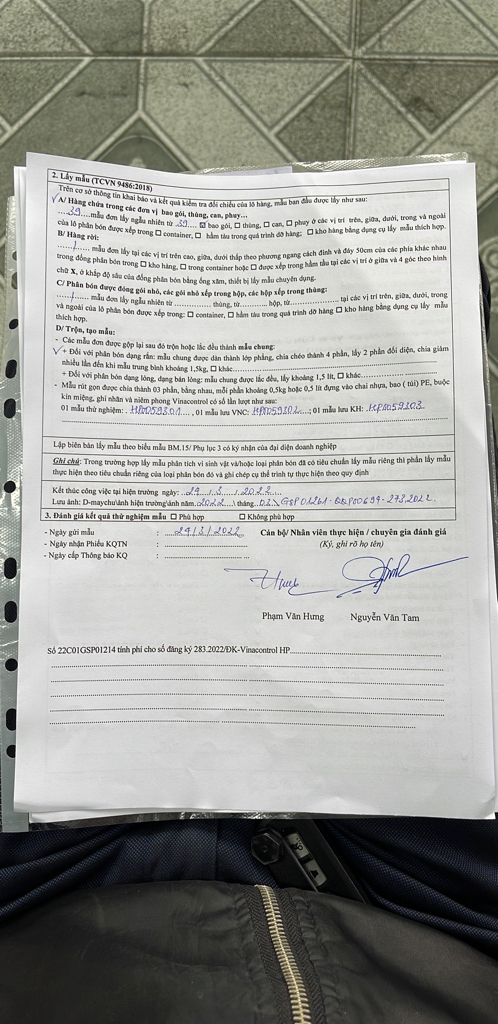 2. Lấy mẫu (TCVN 9486:2018)
Trên cơ sở thông tin khai báo và kết quả kiểm tra đối chiếu của lô hàng, mẫu ban đầu được lấy như sau:
A/ Hàng chứa trong các đơn vị bao gói, thùng, can, phuy...
...39...mẫu đơn lấy ngẫu nhiên từ 39... ☑ bao gói, ☐ thùng, ☐ can, ☐ phuy ở các vị trí trên, giữa, dưới, trong và ngoài
của lô phân bón được xếp trong ☐ container, ☐ hầm tàu trong quá trình dỡ hàng; ☐ kho hàng bằng dụng cụ lấy mẫu thích hợp.
B/ Hàng rời:
....../......... mẫu đơn lấy tại các vị trí trên cao, giữa, dưới thấp theo phương ngang cách đỉnh và đáy 50cm của các phía khác nhau
trong đống phân bón trong ☐ kho hàng, ☐ trong container hoặc ☐ được xếp trong hầm tàu tại các vị trí ở giữa và 4 góc theo hình
chữ X, ở khắp độ sâu của đống phân bón bằng ống xăm, thiết bị lấy mẫu chuyên dụng.
C/ Phân bón được đóng gói nhỏ, các gói nhỏ xếp trong hộp, các hộp xếp trong thùng:
....../......... mẫu đơn lấy ngẫu nhiên từ .................. thùng, từ.................. hộp, từ .................. tại các vị trí trên, giữa, dưới, trong
và ngoài của lô phân bón được xếp trong: ☐ container, ☐ hầm tàu trong quá trình dỡ hàng ☐ kho hàng bằng dụng cụ lấy mẫu
thích hợp.
D/ Trộn, tạo mẫu:
- Các mẫu đơn được gộp lại sau đó trộn hoặc lắc đều thành mẫu chung:
+ Đối với phân bón dạng rắn: mẫu chung được dàn thành lớp phẳng, chia chéo thành 4 phần, lấy 2 phần đối diện, chia giảm
nhiều lần đến khi mẫu trung bình khoảng 1,5kg, ☐ khác..................
+ Đối với phân bón dạng lỏng, dạng bán lỏng: mẫu chung được lắc đều, lấy khoảng 1,5 lít, ☐ khác..................
- Mẫu rút gọn được chia thành 03 phần, bằng nhau, mỗi phần khoảng 0,5kg hoặc 0,5 lít đựng vào chai nhựa, bao ( túi) PE, buộc
kín miệng, ghi nhãn và niêm phong Vinacontrol có số lần lượt như sau:
01 mẫu thử nghiệm: .HP0059301..., 01 mẫu lưu VNC: HP0059302...; 01 mẫu lưu KH: .HP0059303
Lập biên bản lấy mẫu theo biểu mẫu BM.15/ Phụ lục 3 có ký nhận của đại diện doanh nghiệp
Ghi chú: Trong trường hợp lấy mẫu phân tích vi sinh vật và/hoặc loại phân bón đã có tiêu chuẩn lấy mẫu riêng thì phần lấy mẫu
thực hiện theo tiêu chuẩn riêng của loại phân bón đó và ghi chép cụ thể trình tự thực hiện theo quy định
Kết thúc công việc tại hiện trường ngày: ...29.../...3.../...2022...
Lưu ảnh: D-maychu\ảnh hiện trường\ảnh năm.2022...\ tháng .03.\
3. Đánh giá kết quả thử nghiệm mẫu ☐ Phù hợp ☐ Không phù hợp
- Ngày gửi mẫu : ....29/3/2022
- Ngày nhận Phiếu KQTN : ..................
- Ngày cấp Thông báo KQ : ..................
Cán bộ/ Nhân viên thực hiện / chuyên gia đánh giá
(Ký, ghi rõ họ tên)
Phạm Văn Hưng Nguyễn Văn Tam
Số 22C01GSP01214 tính phí cho số đăng ký 283.2022/ĐK-Vinacontrol HP..................